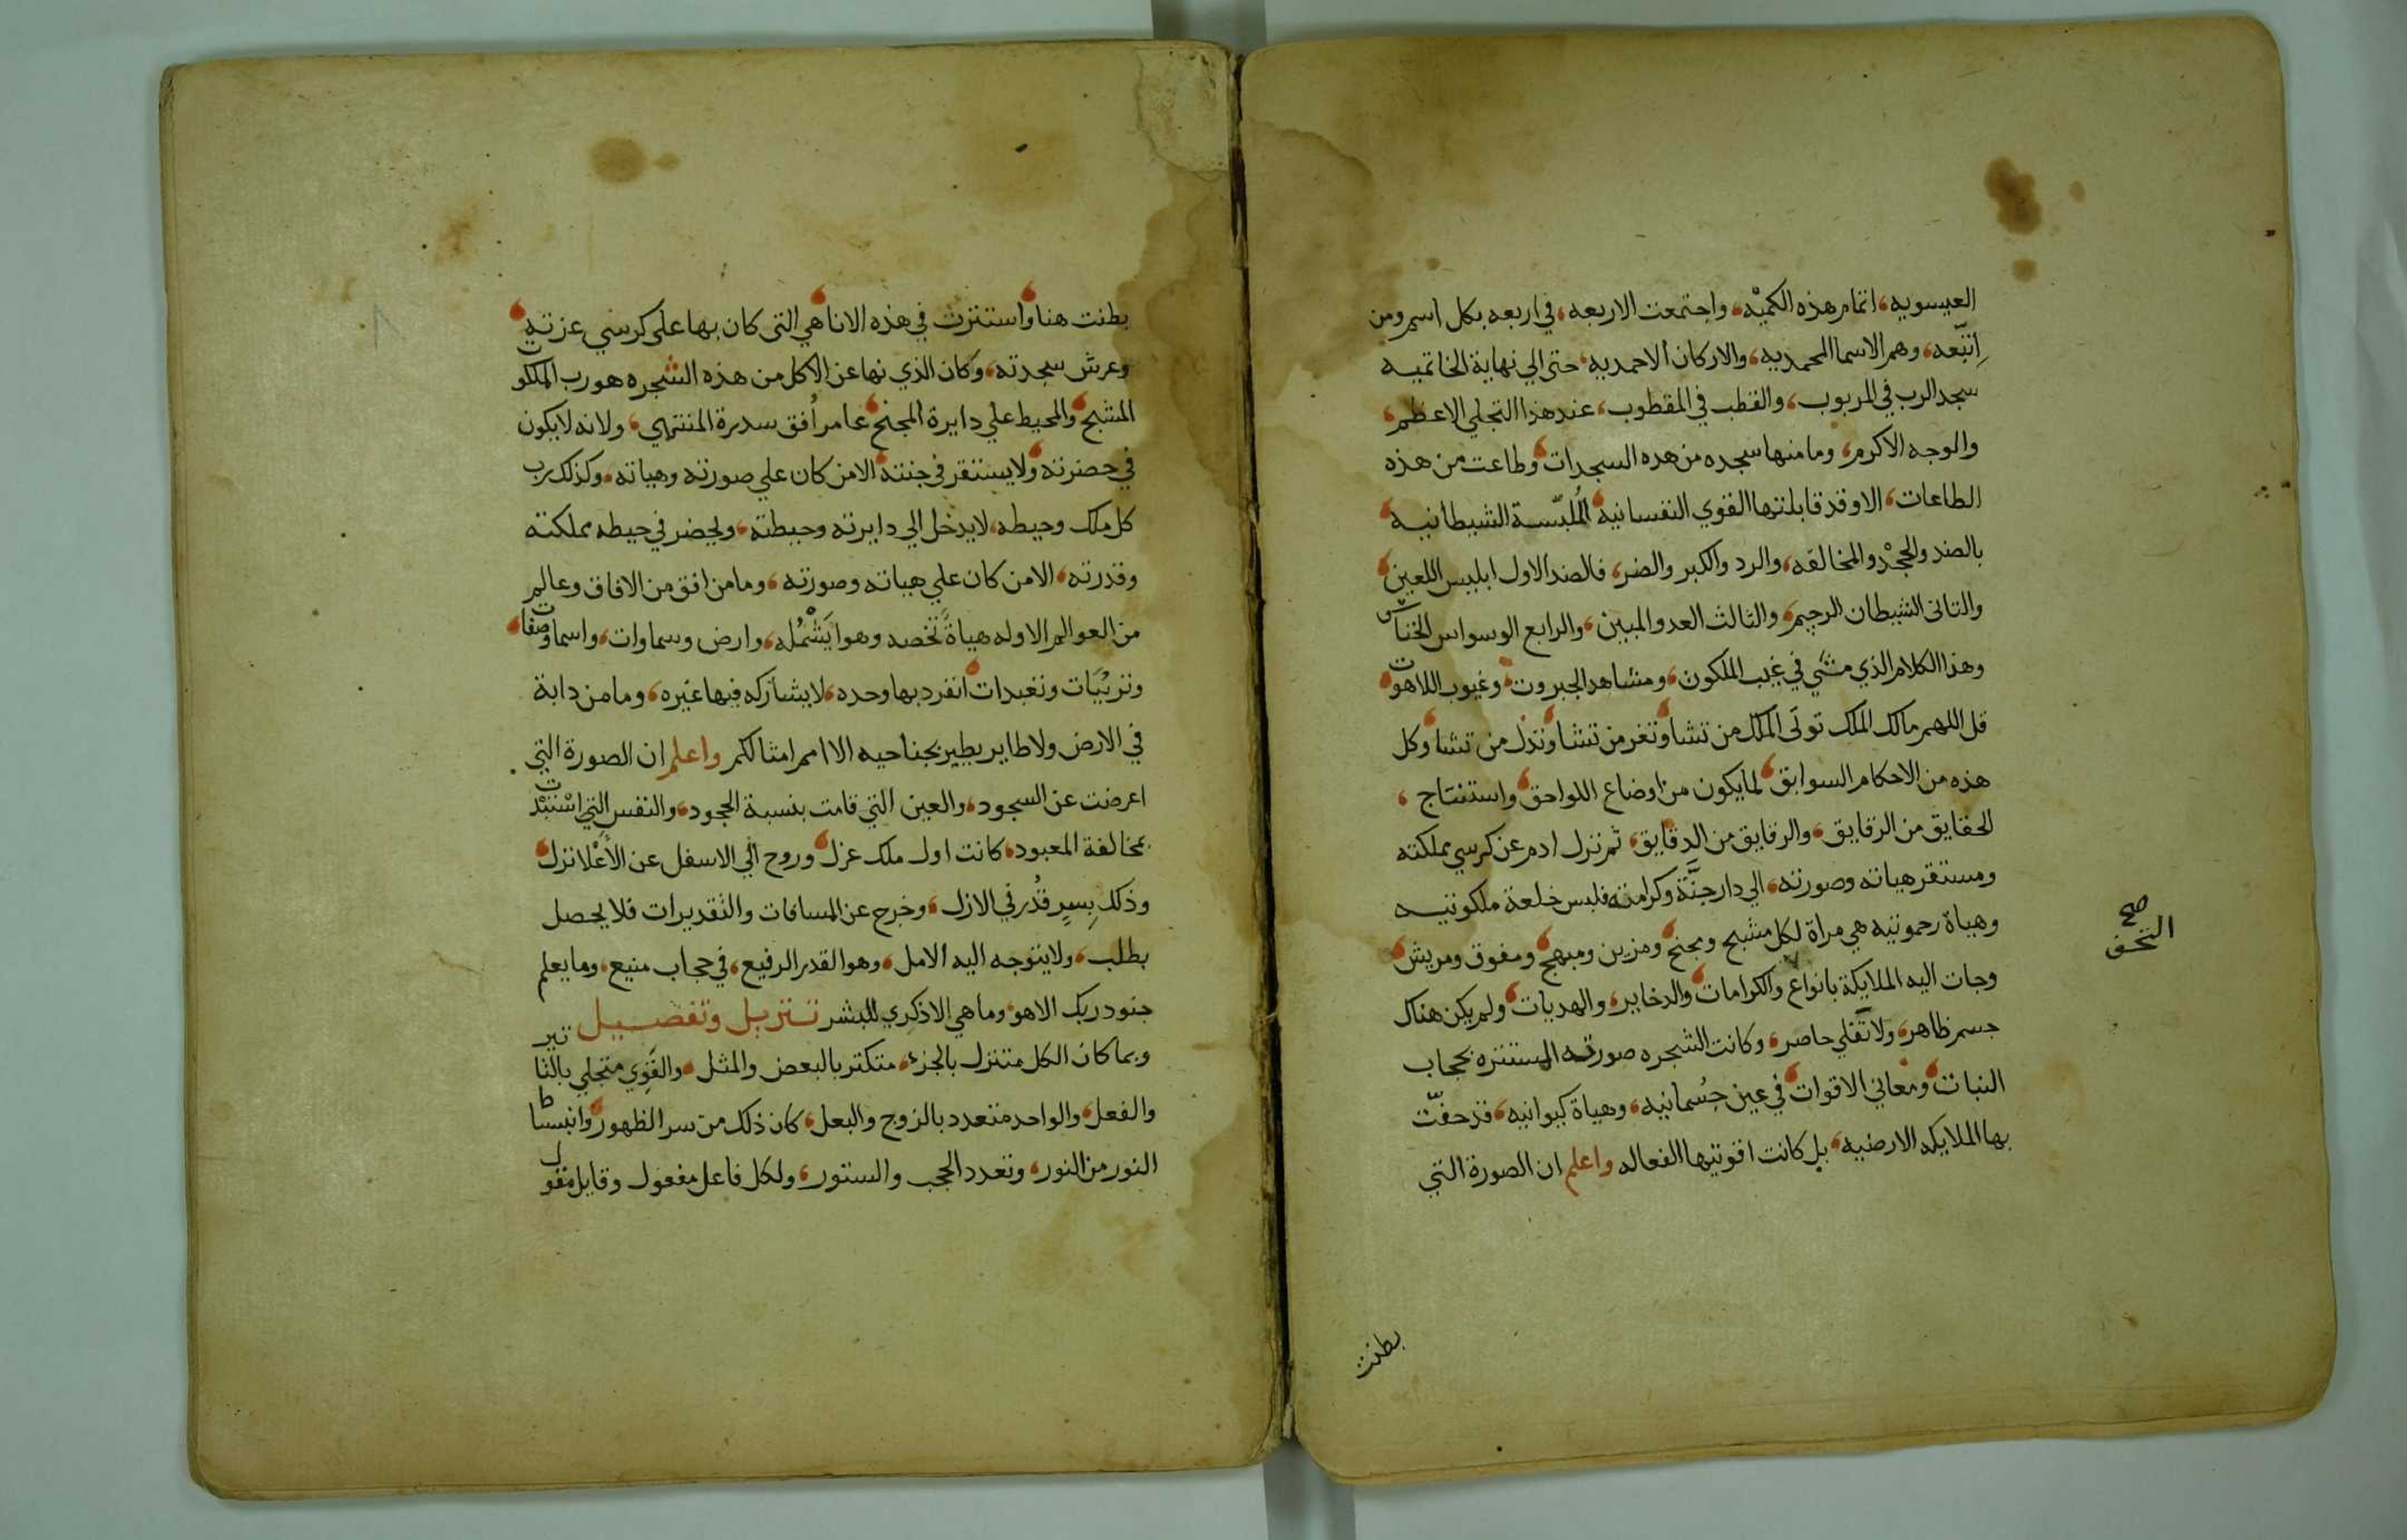 العيسويه، اتمام هذه الكميّه، واجتمعت الاربعه، في اربعه بكل اسم ومن
اتبّعه، وهم الاسما المحمديه، والاركان الاحمديه، حتى الي نهاية الخاتميه
سجد الرب في المربوب، والقطب في المقطوب، عند هذا التجلي الاعظم،
والوجه الاكرم، وما منها سجده من هده السجدات، وطاعت من هذه
الطاعات، الا وقد قابلتها القوي النفسانيه، المُلبّسة الشيطانيه،
بالضد والجحْد والمخالفه، والرد والكبر والضر، فالضد الاول ابليس اللعين،
والثانى الشيطان الرجيم، والثالث العدو المبين، والرابع الوسواس الخناس
وهذا الكلام الذي مشي في غيب الملكوت، ومشاهد الجبروت، وغيوب اللاهوت،
قل اللهم مالك الملك توتي الملك من تشا، وتعز من تشا، وتذل من تشا، وكل
هذه من الاحكام السوابق، لما يكون من اوضاع اللواحق، واستنتاج،
الحقايق من الرقايق، والرقايق من الدقايق، ثم نزل ادم عن كرسي مملكته
ومستقر هياته وصورته، الي دار جنَّة وكرامته فلبس خلعة ملكوتيه
وهياة رحموتيه هي مراة لكل مشبح ومجنح، ومزين ومبهج، ومفوق ومريش،
وجات اليه الملايكة بانواع والكرامات، والدخاير، والهديات، ولم يكن هناك
صح
التحف
جسم ظاهر، ولا ثقلي حاصر، وكانت الشجره صورته المستتره بحجاب
النبات، ومعاني الاقوات، في عين جُسمانيه، وهياة كيوانيه، قد حفّت
بها الملايكه الارضيه، بل كانت اقوتيها الفعاله واعلم ان الصورة التي
بطنت
بطنت هنا، واستترت في هذه الانا، هي التى كان بها على كرسي عزته،
وعرش سجدته، وكان الذي نها عن الاكل من هذه الشجره هو رب الملكوت
المشبح، والمحيط علي دايرة المجنح، عامر اُفق سدرة المنتهي، ولانه لا يكون
في حضرته، ولا يستقر في جنته، الا من كان علي صورته وهياته، وكذلك رب
كل ملك وحيطه، لا يدخل الي دايرته وحيطته، ويحضر في حيطه مملكته
وقدرته، الا من كان علي هياته وصورته، وما من افق من الافاق وعالم
من العوالم الا وله هياةً تخصه وهوا يَشْمُله، وارض وسماوات، واسما وصفات،
وتربُيَات وتعبدات، انفرد بها وحده، لا يشاركه فيها غيره، وما من دابة
في الارض ولا طاير يطير بجناحيه الا امم امثالكم واعلم ان الصورة التي
اعرضت عن السجود، والعين التي قامت بنسبة الجحود، والنفس التي اسْتبْدت
بمخالفة المعبود، كانت اول ملك عزل، وروح الي الاسفل عن الأعْلا نزل،
وذلك بِسِرٍ قُدُر في الازل، وخرج عن المسافات والتقديرات فلا يحصل
بطلب، ولا يتوجه اليه الامل، وهو القدر الرفيع، في حجاب منيع، وما يعلم
جنود ربك الا هو، وما هي الا ذكري للبشر تنزيل وتفصيل
وبما كان الكل متنزل بالجزء، متكثر بالبعض والمثل، والقَوِي متجلي بالتاثير
والفعل، والواحد متعدد بالزوج والبعل، كان ذلك من سر الظهور، وانبساط
النور من النور، وتعدد الحجب والستور، ولكل فاعل مفعول وقايل مقول